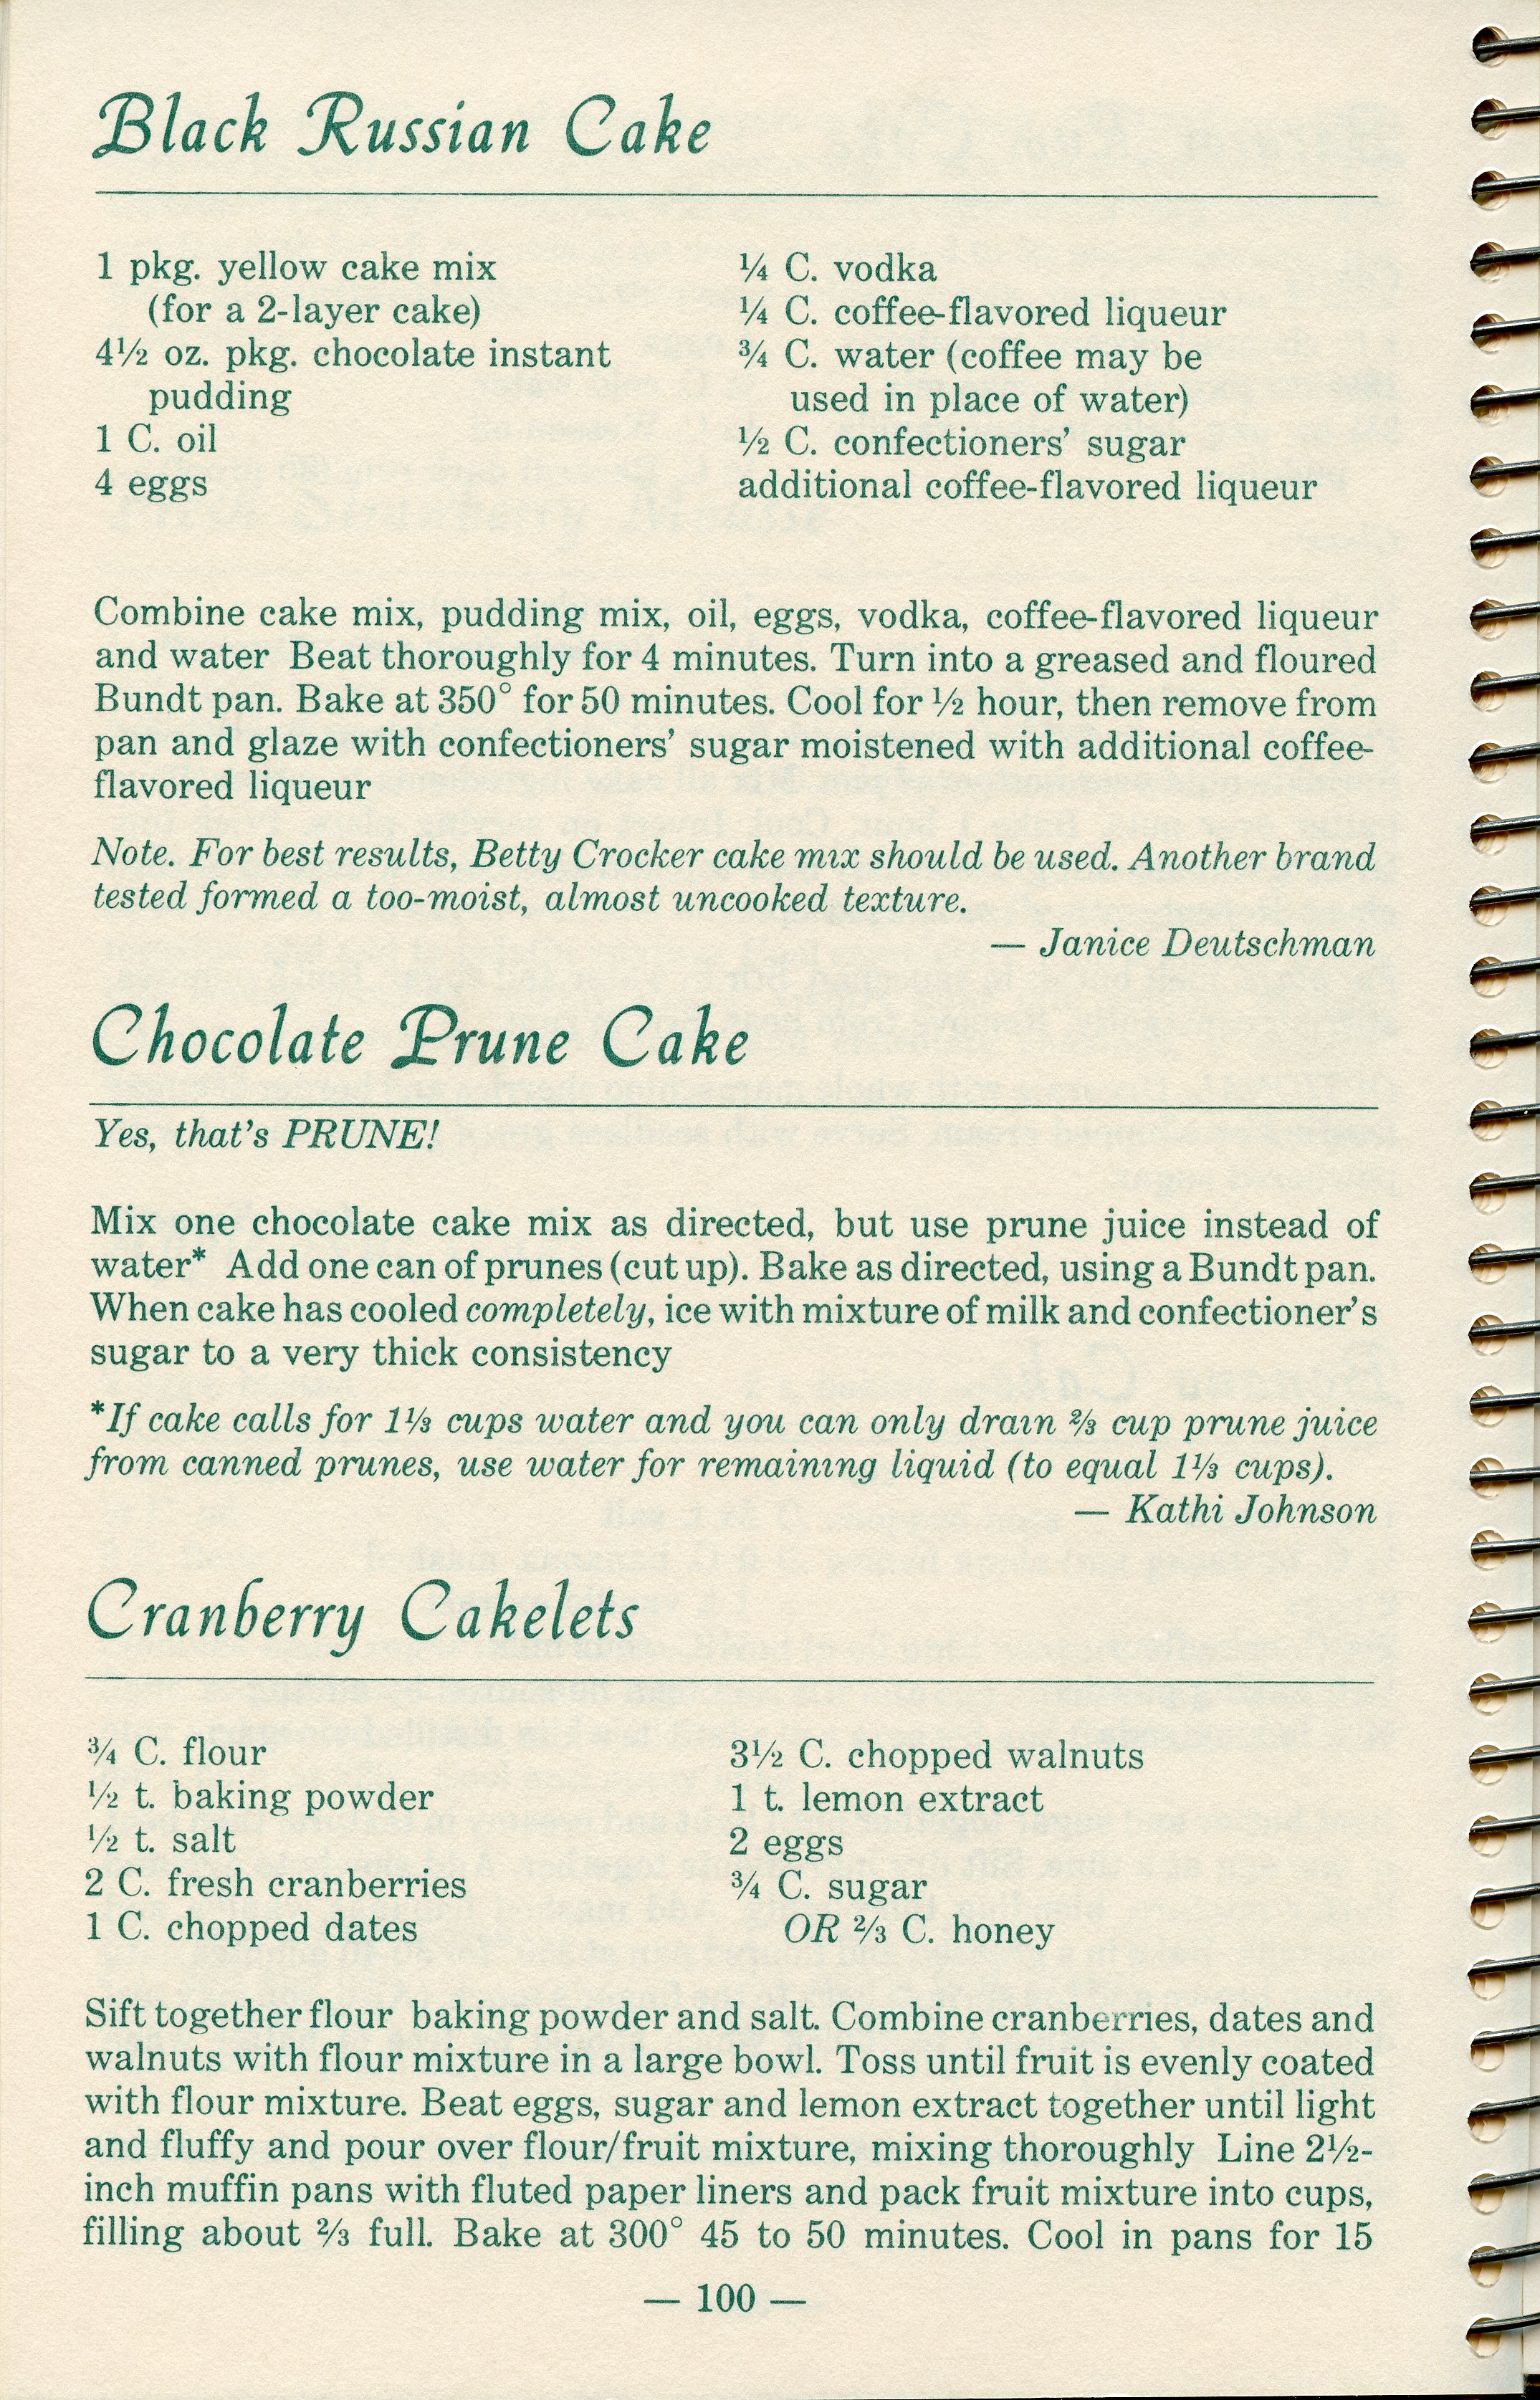 Black Russian Cake
1 pkg. yellow cake mix
(for a 2-layer cake)
4½ oz. pkg. chocolate instant
pudding
1 C. oil
4 eggs
¼ C. vodka
¼ C. coffee-flavored liqueur
¾ C. water (coffee may be
used in place of water)
½ C. confectioners' sugar
additional coffee-flavored liqueur
Combine cake mix, pudding mix, oil, eggs, vodka, coffee-flavored liqueur
and water Beat thoroughly for 4 minutes. Turn into a greased and floured
Bundt pan. Bake at 350° for 50 minutes. Cool for ½ hour, then remove from
pan and glaze with confectioners' sugar moistened with additional coffee-
flavored liqueur
Note. For best results, Betty Crocker cake mix should be used. Another brand
tested formed a too-moist, almost uncooked texture.
— Janice Deutschman
Chocolate Prune Cake
Yes, that's PRUNE!
Mix one chocolate cake mix as directed, but use prune juice instead of
water* Add one can of prunes (cut up). Bake as directed, using a Bundt pan.
When cake has cooled completely, ice with mixture of milk and confectioner's
sugar to a very thick consistency
*If cake calls for 1⅓ cups water and you can only drain ⅔ cup prune juice
from canned prunes, use water for remaining liquid (to equal 1⅓ cups).
— Kathi Johnson
Cranberry Cakelets
¾ C. flour
½ t. baking powder
½ t. salt
2 C. fresh cranberries
1 C. chopped dates
3½ C. chopped walnuts
1 t. lemon extract
2 eggs
¾ C. sugar
OR ⅔ C. honey
Sift together flour baking powder and salt. Combine cranberries, dates and
walnuts with flour mixture in a large bowl. Toss until fruit is evenly coated
with flour mixture. Beat eggs, sugar and lemon extract together until light
and fluffy and pour over flour/fruit mixture, mixing thoroughly Line 2½-
inch muffin pans with fluted paper liners and pack fruit mixture into cups,
filling about ⅔ full. Bake at 300° 45 to 50 minutes. Cool in pans for 15
— 100 —